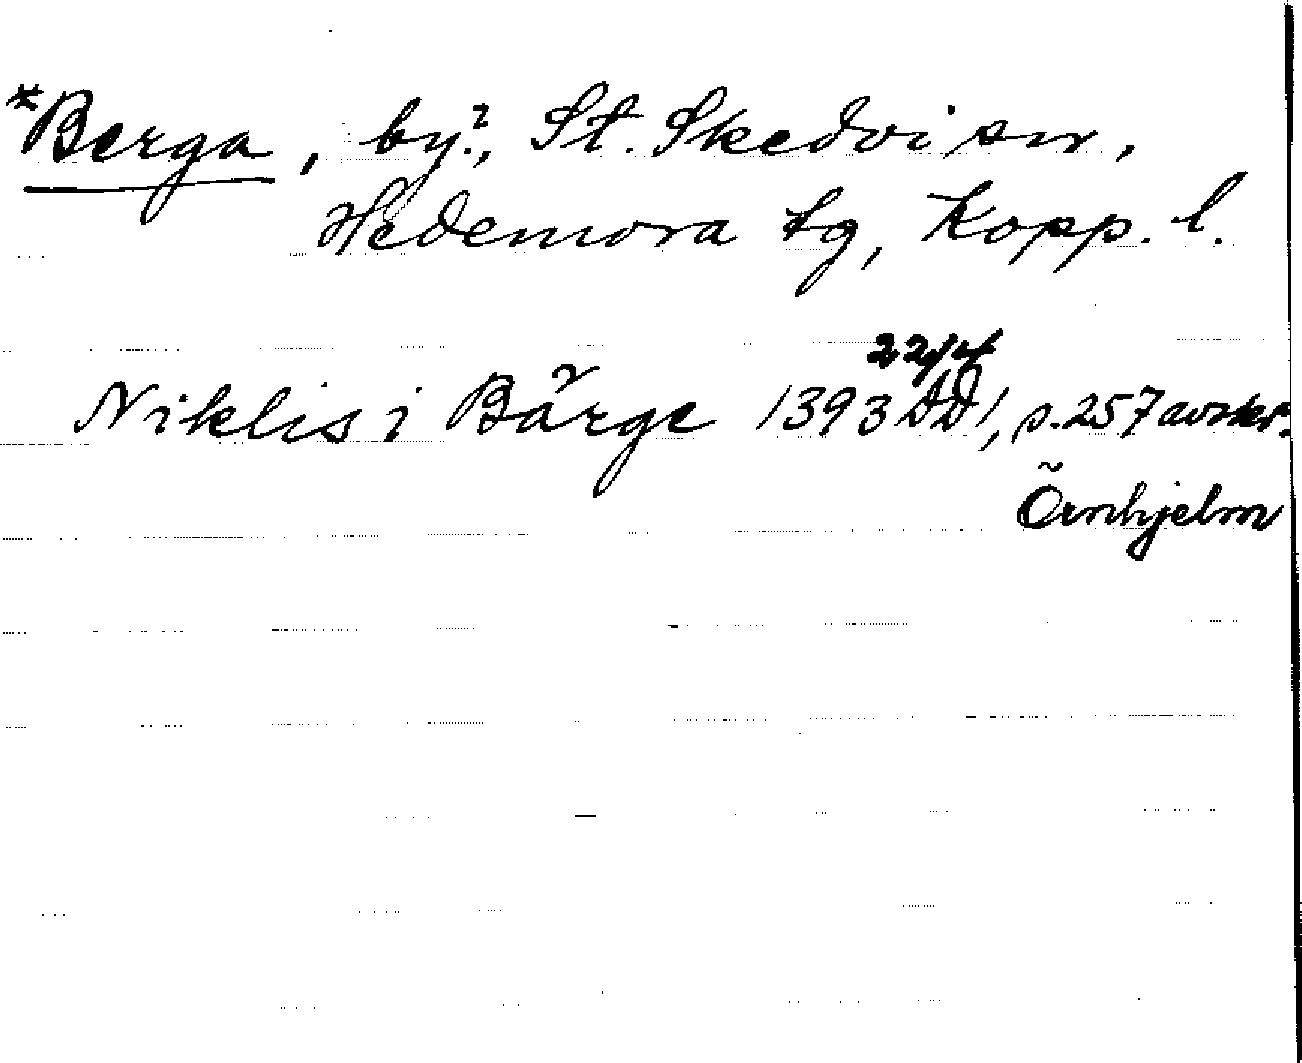 *Berga, by?, St. Skedvi sn,
Hedemora tg, Kopp. l.
Niklis i Bärge 1393 22/4 DD 1, s. 257 avskr.
Örnhjelm